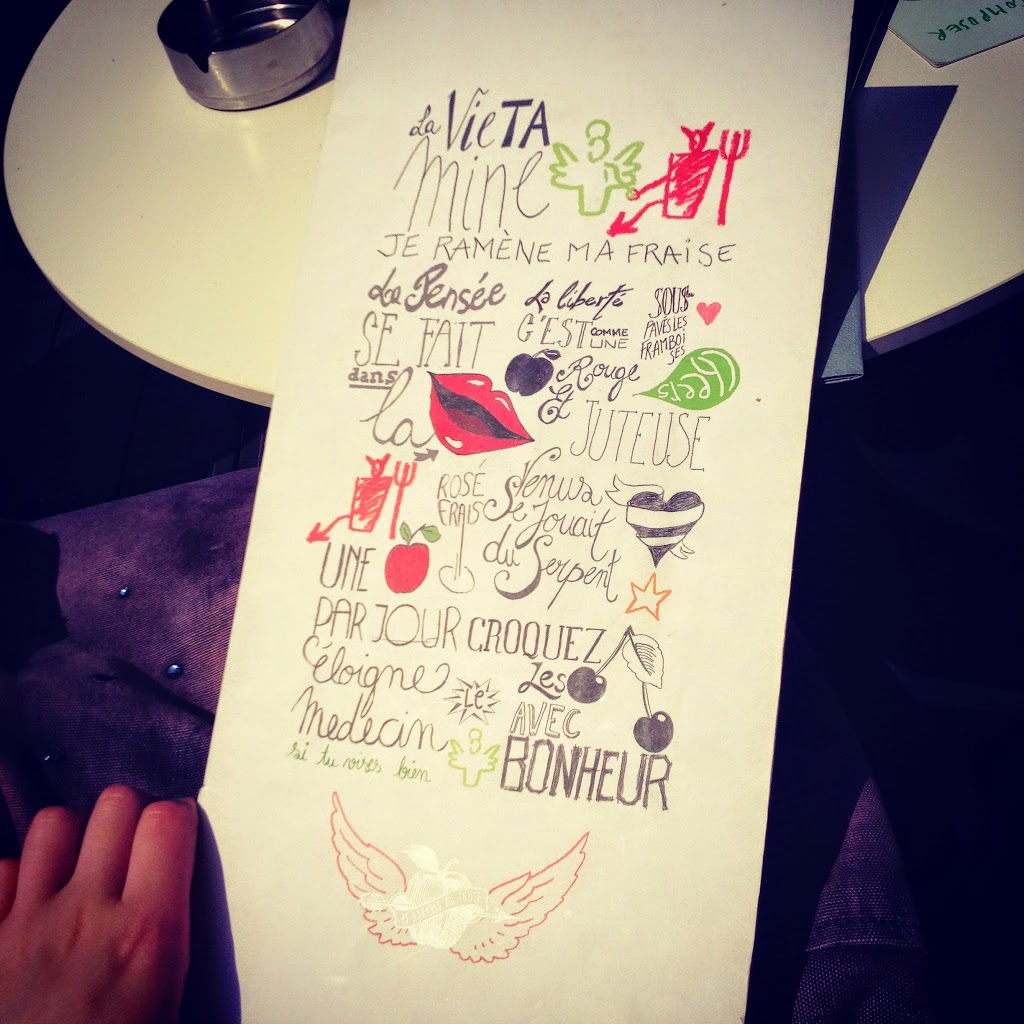 La Vie TA
mine
JE RAMÈNE MA FRAISE
La Pensée
SE FAIT
dans
la
La liberté
C'EST COMME UNE
Rouge
Et
JUTEUSE
SOUS les
PAVÉS LES
FRAMBOI
SES
Cheers
ROSÉ
FRAIS
Venus
Se Jouait
du
Serpent
UNE
PAR JOUR
Éloigne
LE
Medecin
si tu vises bien
CROQUEZ
Les
AVEC
BONHEUR
COMPOSER